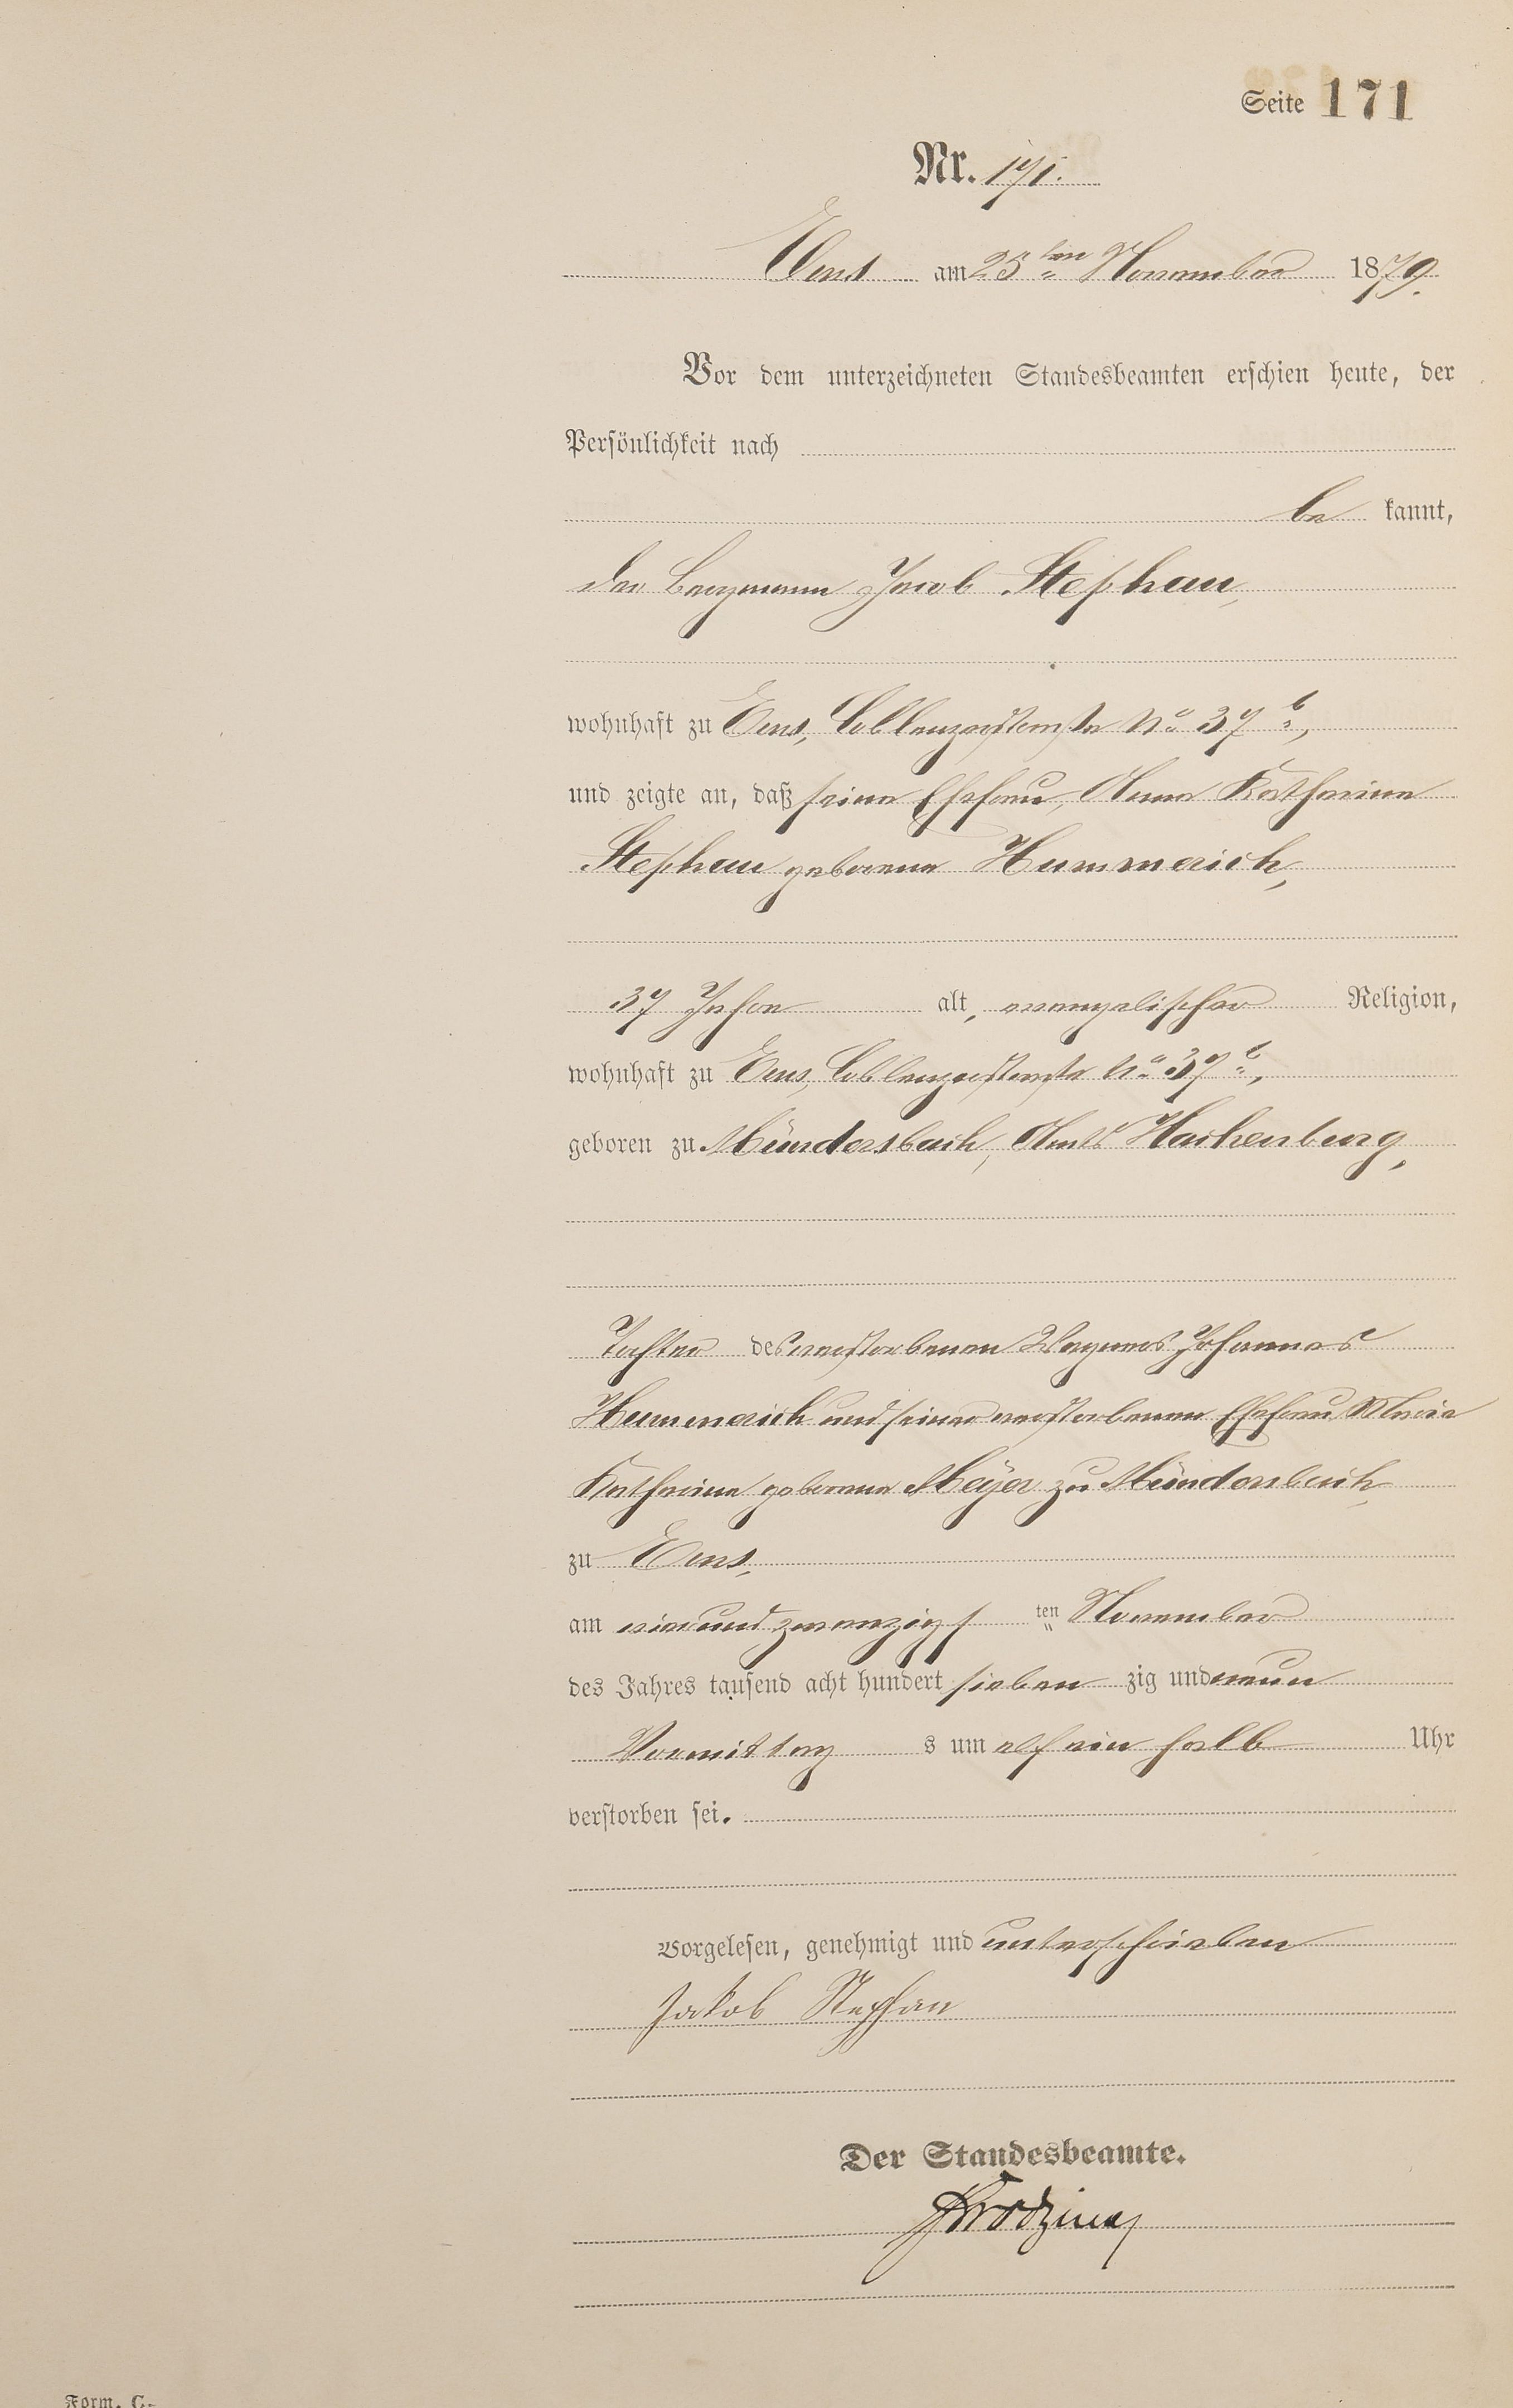 Seite 171
Nr. 171.
Ems am 25ten November 1879.
Vor dem unterzeichneten Standesbeamten erschien heute, der
Persönlichkeit nach
be kannt,
der Bergmann Jacob Stephan,
wohnhaft zu Ems, Coblenzerstraße No 37 b,
und zeigte an, daß seine Ehefrau, Anna Katharina
Stephan geborene Hummerich,
37 Jahre alt, evangelischer Religion,
wohnhaft zu Ems, Coblenzerstraße No 37 b,
geboren zu Mündersbach, Amts Hachenburg,
Tochter des verstorbenen Wagners Johannes
Hummerich und seiner verstorbenen Ehefrau Maria
Katharina geborene Meÿer zu Mündersbach,
zu Ems,
am vierundzwanzigs ten November
des Jahres tausend acht hundert sieben zig und neun
Vormittag s um elf ein halb Uhr
verstorben sei.
Vorgelesen, genehmigt und unterschrieben
Jakob Stephan
Der Standesbeamte.
Form. C.